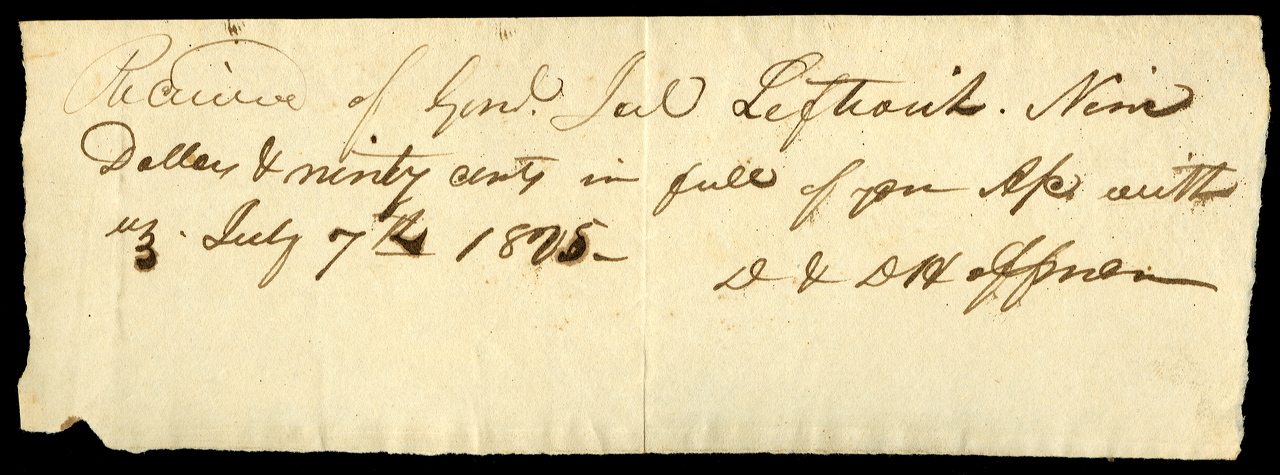 Received of Genl. Joel Leftwich. Nine
Dollars & ninty cents in full of your A/c with
us. July 7th 1825—
D & D Hoffman